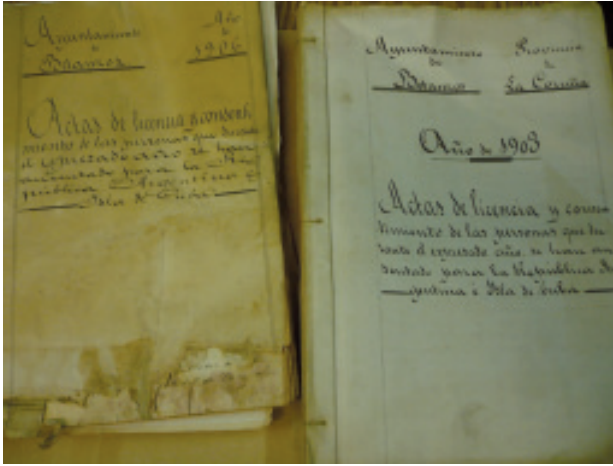 Ayuntamiento
de
Betanzos
Año
de
1906
Actas de licencia y consenti-
miento de las personas que durante
el expresado año se han
ausentado para la Re-
pública Argentina é
Isla de Cuba
Ayuntamiento
de
Betanzos
Provincia
de
La Coruña
Año de 1903
Actas de licencia y consen
timiento de las personas que du
rante el expresado año se han au
sentado para la República Ar
gentina é Isla de Cuba